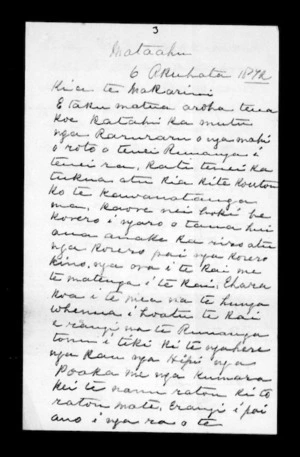 3
Mataahu
6 Akuhata 1872
Kia te Makarini
E taku matua aroha tena
koe Katahi ka mutu
nga Raruraru o nga mahi
o roto o tenei Runanga i
tenei ra, kati tenei ka
tukua atu kia kite koutou
ko te Kawanatanga
ma, kaore nei hoki he
korero i ngaro o taua hui
ana anake ka riro atu
nga korero pai nga korero
kino, nga ora i te Kai me
te matenga i te Kai, Ehara
koa i te mea na te hunga
whenua i hoatu te Kai
e rangi na te Runanga
tonu i tiki ki te ngahere
nga Kau nga Hipi nga
Poaka me nga kumara
kei te nanu ratou ki to
ratou mate, Erangi i pai
ano i nga ra o te